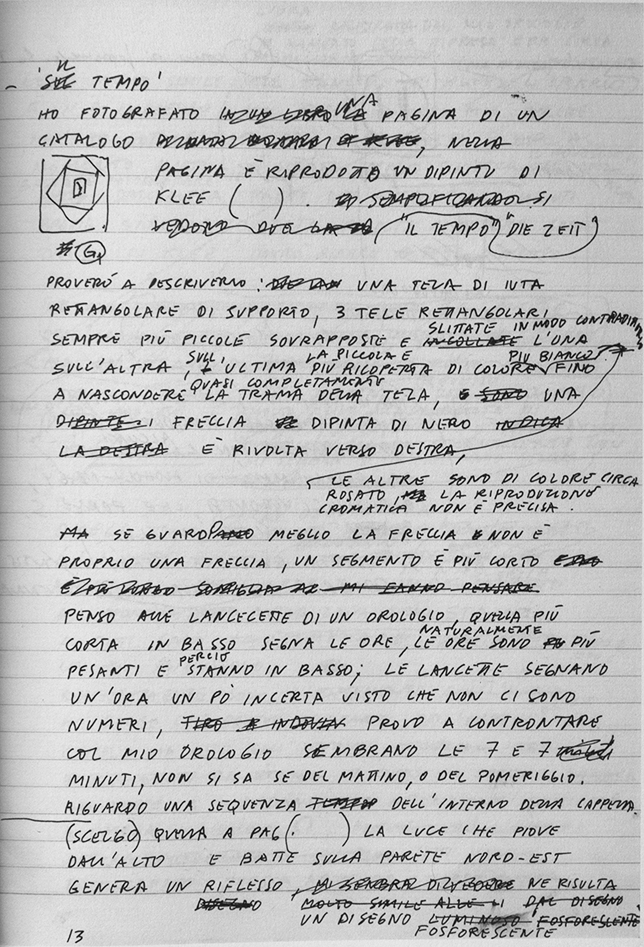 - 'IL TEMPO'
HO FOTOGRAFATO UNA PAGINA DI UN
CATALOGO , NELLA
PAGINA È RIPRODOTTO UN DIPINTO DI
KLEE ( ) . SEMPLIFICANDO SI
VEDONO DUE "IL TEMPO" "DIE ZEIT"
G
PROVERÒ A DESCRIVERLO : UNA TELA DI IUTA
RETTANGOLARE DI SUPPORTO, 3 TELE RETTANGOLARI
SLITTATE IN MODO
SEMPRE PIÙ PICCOLE SOVRAPPOSTE E INCOLLATE L'UNA
SULL' LA PICCOLA E PIÙ BIANCO
SULL'ALTRA, ULTIMA PIÙ RICOPERTA DI COLORE FINO
QUASI COMPLETAMENTE
A NASCONDERE LA TRAMA DELLA TELA, E SONO UNA
DIPINTE FRECCIA DIPINTA DI NERO INDICA
LA DESTRA È RIVOLTA VERSO DESTRA,
LE ALTRE SONO DI COLORE CIRCA
ROSATO, LA RIPRODUZIONE
CROMATICA NON È PRECISA.
MA SE GUARDO MEGLIO LA FRECCIA NON È
PROPRIO UNA FRECCIA, UN SEGMENTO È PIÙ CORTO
MI FANNO PENSARE
PENSO ALLE LANCETTE DI UN OROLOGIO, QUELLA PIÙ
NATURALMENTE
CORTA IN BASSO SEGNA LE ORE, LE ORE SONO PIÙ
PERCIÒ
PESANTI E STANNO IN BASSO; LE LANCETTE SEGNANO
UN'ORA UN PÒ INCERTA VISTO CHE NON CI SONO
NUMERI, TIRO A INDOVIN PROVO A CONTRONTARE
COL MIO OROLOGIO SEMBRANO LE 7 E 7
MINUTI, NON SI SA SE DEL MATTINO, O DEL POMERIGGIO.
RIGUARDO UNA SEQUENZA DELL'INTERNO DELLA CAPPELLA.
(SCELGO) QUELLA A PAG (. ) LA LUCE CHE PIOVE
DALL'ALTO E BATTE SULLA PARETE NORD-EST
GENERA UN RIFLESSO, MI SEMBRA DI VEDERE NE RISULTA
DISEGNO MOLTO SIMILE ALLE DAL DISEGNO
UN DISEGNO LUMINOSO FOSFORESCENTE
FOSFORESCENTE
13